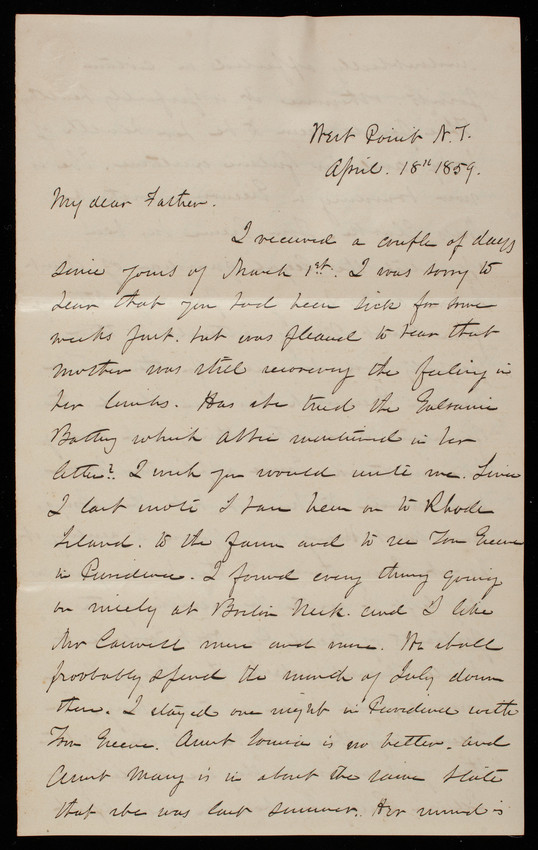 West Point N.Y.
April. 18th 1859.
My dear Father.
I received a couple of days
since yours of March 1st. I was sorry to
hear that you had been sick for some
weeks past. but was pleased to hear that
Mother was still recovering the feeling in
her limbs. Has she tried the Galvanic
Battery which Abbie mentioned in her
letter? I wish you would write me. Since
I last wrote I have been on to Rhode
Island. to the farm and to see Tom Greene
in Providence. I found every thing going
on nicely at Boston Neck. and I like
Mr Caswell more and more. We shall
probably spend the month of July down
there. I stayed one night in Providence with
Tom Greene. Aunt Louisa is no better. and
Aunt Mary is in about the same state
that she was last summer. Her mind is